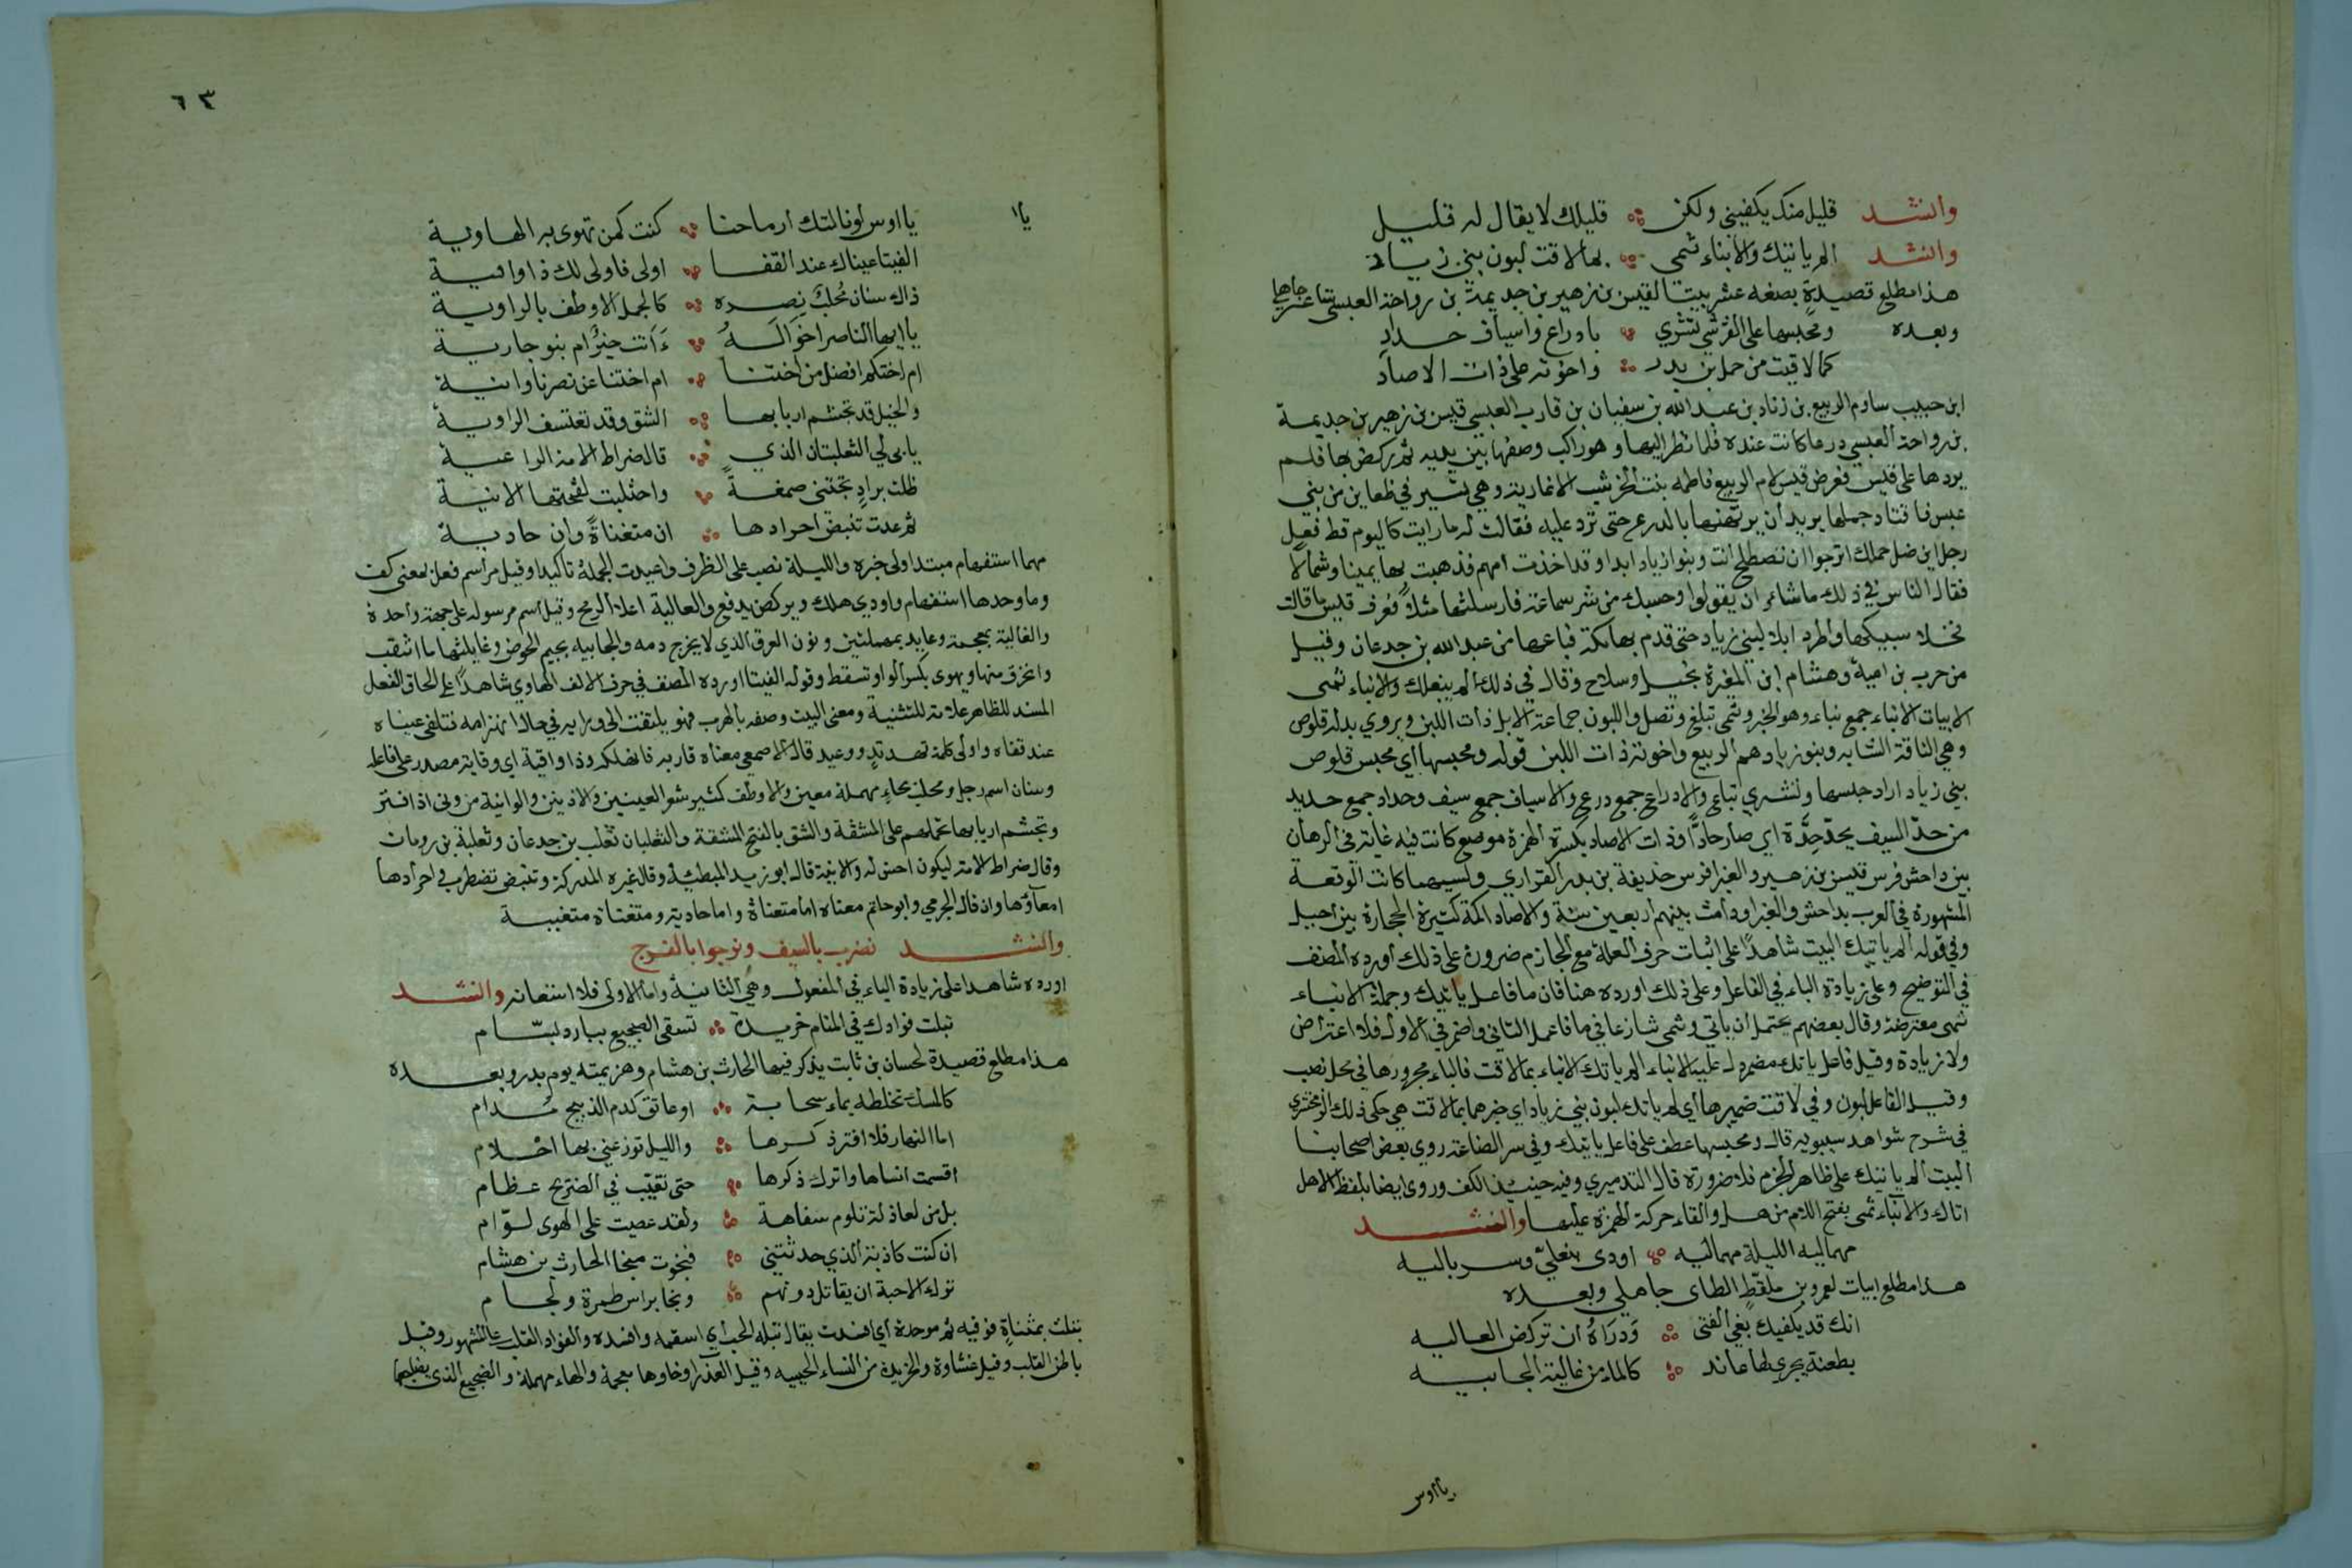 وانشد قليل منك يكفيني ولكن قليلك لا يقال له قليل
وانشد الم ياتيك والانباء تنمى بما لاقت لبون بني زياد
هذا مطلع قصيدة بضعة عشر بيتا لقيس بن زهير بن جديمة بن رواحة العبسي شاعر جاهلي
وبعده ومحبسها على القرشي تشري بادراع واسياف حداد
كما لاقيت من حمل بن بدر واخوته على ذات الاصاد
ابن حبيب ساوم الربيع بن زناد بن عبد الله بن سفيان بن قارب العبسي قيس بن زهير بن جديمة
بن رواحة العبسي درعا كانت عنده فلما نظر اليها وهو راكب وضعها بين يديه ثم ركض بها فلم
يردها على قيس فعرض قيس لام الربيع فاطمة بنت الخرشب الانمارية وهي تسير في ظعاين من بني
عبس فاقتاد جملها يريد ان يرتهنها بالدرع حتى ترد عليه فقالت له ما رايت كاليوم قط فعل
رجل اين ضل حملك اترجوا ان تصطلح انت وبنوا زياد ابدا وقد اخذت امهم فذهبت بها يمينا وشمالا
فقال الناس في ذلك ما شاءوا ان يقولوا وحسبك من شر سماعه فارسلتها مثلا فعرف قيس ما قالت
فخلا سبيلها واطرد ابلا لبني زياد حتى قدم بها مكة فباعها من عبد الله بن جدعان وقيل
من حرب بن امية وهشام ابن المغيرة بخيل وسلاح وقال في ذلك الم يبلغك والانباء تنمى
الابيات الانباء جمع نباء وهو الخبر وتنمى تبلغ وتصل واللبون جماعة الابل ذات اللبن ويروى بدله قلوص
وهي الناقة الشابه وبنو زياد هم الربيع واخوته ذات اللبن قوله ومحبسها اي محبس قلوص
بني زياد اراد حبسها وتشري تباع والادراع جمع درع والاسياف جمع سيف وحداد جمع حديد
من حد السيف يحد حدة اي صار حادا وذات الاصاد بكسرة الهمزة موضع كانت فيه غاية في الرهان
بين داحس فرس قيس بن زهير والغبرا فرس حذيفة بن بدر الفزاري ولسببهما كانت الوقعة
المشهورة في العرب بداحس والغبرا ودامت بينهم اربعين سنة والاصاد اكمة كثيرة الحجارة بين اجبل
وفي قوله الم ياتيك البيت شاهدا على اثبات حرف العلة مع الجازم ضرورة على ذلك اورده المصنف
في التوضيح وعلى زيادة الباء في الفاعل وعلى ذلك اورده هنا فان ما فاعل ياتيك وجملة الانباء
تنمى معترضة وقال بعضهم يحتمل ان ياتي وتنمى تنازعا في ما فاعمل الثاني واضمر في الاول فلا اعتراض
ولا زيادة وقيل فاعل ياتك مضمر دل عليه الانباء الم ياتك الانباء بما لاقت فالباء مجرورها في محل نصب
وقيل الفاعل لبون وفي لاقت ضميرها اي لم ياتك لبون بني زياد اي خبرها بما لاقت هي حكى ذلك الزمخشري
في شرح شواهد سيبويه قال ومحبسها عطف على فاعل ياتيك وفي سر الصناعة روى بعض اصحابنا
البيت الم ياتيك على ظاهر الجزم فلا ضرورة قال التدميري وفيه حينئذ الكف وروي ايضا بلفظ الاهل
اتاك والانباء تنمى بفتح اللام من هل والقاء حركة الهمزة عليها وانشد
مهما ليه الليلة مهما ليه اودى بنعلي وسرباليه
هذا مطلع ابيات لعمرو بن ملقط الطاي جاهلي وبعده
انك قد يكفيك بغي الفتى ودراه ان تركض العاليه
بطعنة يجري لها عاند كالماء من غالية الجابيه
يا اوس
٦٣
يا اوس لو نالتك ارماحنا كنت كمن تهوى به الهاوية
الفيتا عيناك عند القفا اولى فاولى لك ذا واقية
ذاك سنان محلب نصره كالجمل الاوطف بالراوية
يا ايها الناصر اخواله ءانت خير ام بنو جارية
ام اختكم افضل من اختنا ام اختنا عن نصرنا وانية
والخيل قد تجشم اربابها الشق وقد تعتسف الراوية
يابى لي الثعلبتان الذي قال ضراط الامة الراعية
ظلت براد تجتني صمغة واحتلبت لقحتها الانية
ثم غدت تنبض احرادها ان متغناة وان حادية
مهما استفهام مبتدا ولي خبره والليلة نصب على الظرف واعيدت الجملة تاكيدا وقيل مه اسم فعل بمعنى كفت
وما وحدها استفهام واودى هلك ويركض يدفع والعالية اعلا الرمح وقيل اسم فرسوله على جهة واحدة
والغالية بمعجمة وعايد بمهملتين ونون العرق الذي لا يخرج دمه والجابيه بجيم الحوض وغايلتها ما انثقب
وانخرق منها ويهوى بكسر الواو تسقط وقوله الفيتا اورده المصنف في حرف الالف الهاوي شاهدا على الحاق الفعل
المسند للظاهر علامة للتثنية ومعنى البيت وصفه بالهرب فهو يلتفت الى ورايه في حال انهزامه فتلفى عيناه
عند قفاه واولى كلمة تهديد ووعيد قال الاصمعي معناه قاربه فاهلكه وذا واقية اي وقاية مصدر على فاعله
وسنان اسم رجل ومحلب بحاء مهملة معين والاوطف كثير شعر العينين والاذنين والوانية من ونى اذا فتر
وتجشم اربابها تحملهم على المشقة والشق بالفتح المشقة والثعلبان ثعلب بن جدعان وثعلبة بن رومان
وقال ضراط الامة ليكون احسن له والانية قال ابو زيد المبطئة وقال غيره المدركة وتنبض تضطرب في احرادها
امعاؤها وان قال الجرمي وابو حاتم معناه اما متغناة واما حادية ومتغناة متغنية
وانشد نضرب بالسيف ونرجوا بالفرج
اورده شاهدا على زيادة الباء في المفعول وهي الثانية واما الاولى فلا استعانه وانشد
تبلت فوادك في المنام خريدة تسقى الضجيع ببارد بسام
هذا مطلع قصيدة لحسان بن ثابت يذكر فيها الحارث بن هشام وهزيمته يوم بدر وبعده
كالمسك تخلطه بماء سحابة او عاتق كدم الذبيح مدام
اما النهار فلا افتر ذكرها والليل توزعني بها احلام
اقسمت انساها واترك ذكرها حتى تغيب في الضريح عظام
بل من لعاذلة تلوم سفاهة ولقد عصيت على الهوى لوام
ان كنت كاذبة الذي حدثتني فنجوت منجا الحارث بن هشام
ترك الاحبة ان يقاتل دونهم ونجا براس طمرة ولجام
تبلت بمثناة فوقيه ثم موحدة اي افسدت يقال تبله الحب اي اسقمه وافسده والفواد القلب على المشهور وقيل
باطن القلب وقيل غشاوة والخريدة من النساء الحييه وقيل العذرا وخاوها معجمة والهاء مهملة والضجيع الذي يضاجعها